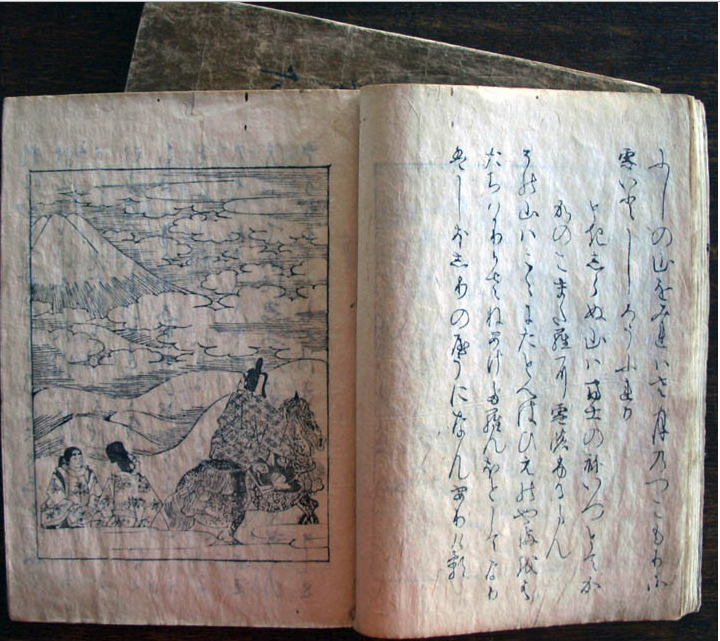 ふしの山をみれはさ月のつこもりに
雪いとしろうふれり
ときしらぬ山は富士の ねいつとてか
かのこまたらに雪のふるらん
その山はこゝにたとへはひえのやまをは
たちはかりかさねあけたらんほとしてなり
はしほしりのやうになんありける